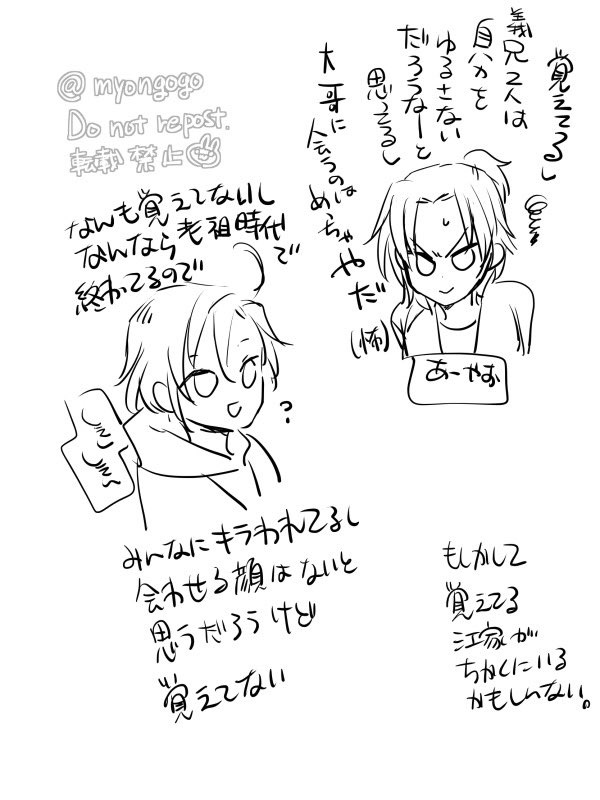 @myongogo
Do not repost.
転載禁止
覚えてるし
義兄2人は
自分を
ゆるさない
だろうなーと
思ってるし
大哥に
会うのは
めっちゃやだ
(怖)
あーやお
なんも覚えてないし
なんなら老祖時代で
終わってるので
?
みんなにキラわれてるし
会わせる顔はないと
思うだろうけど
覚えてない
もしかして
覚えてる
江家が
ちかくにいる
かもしんない。